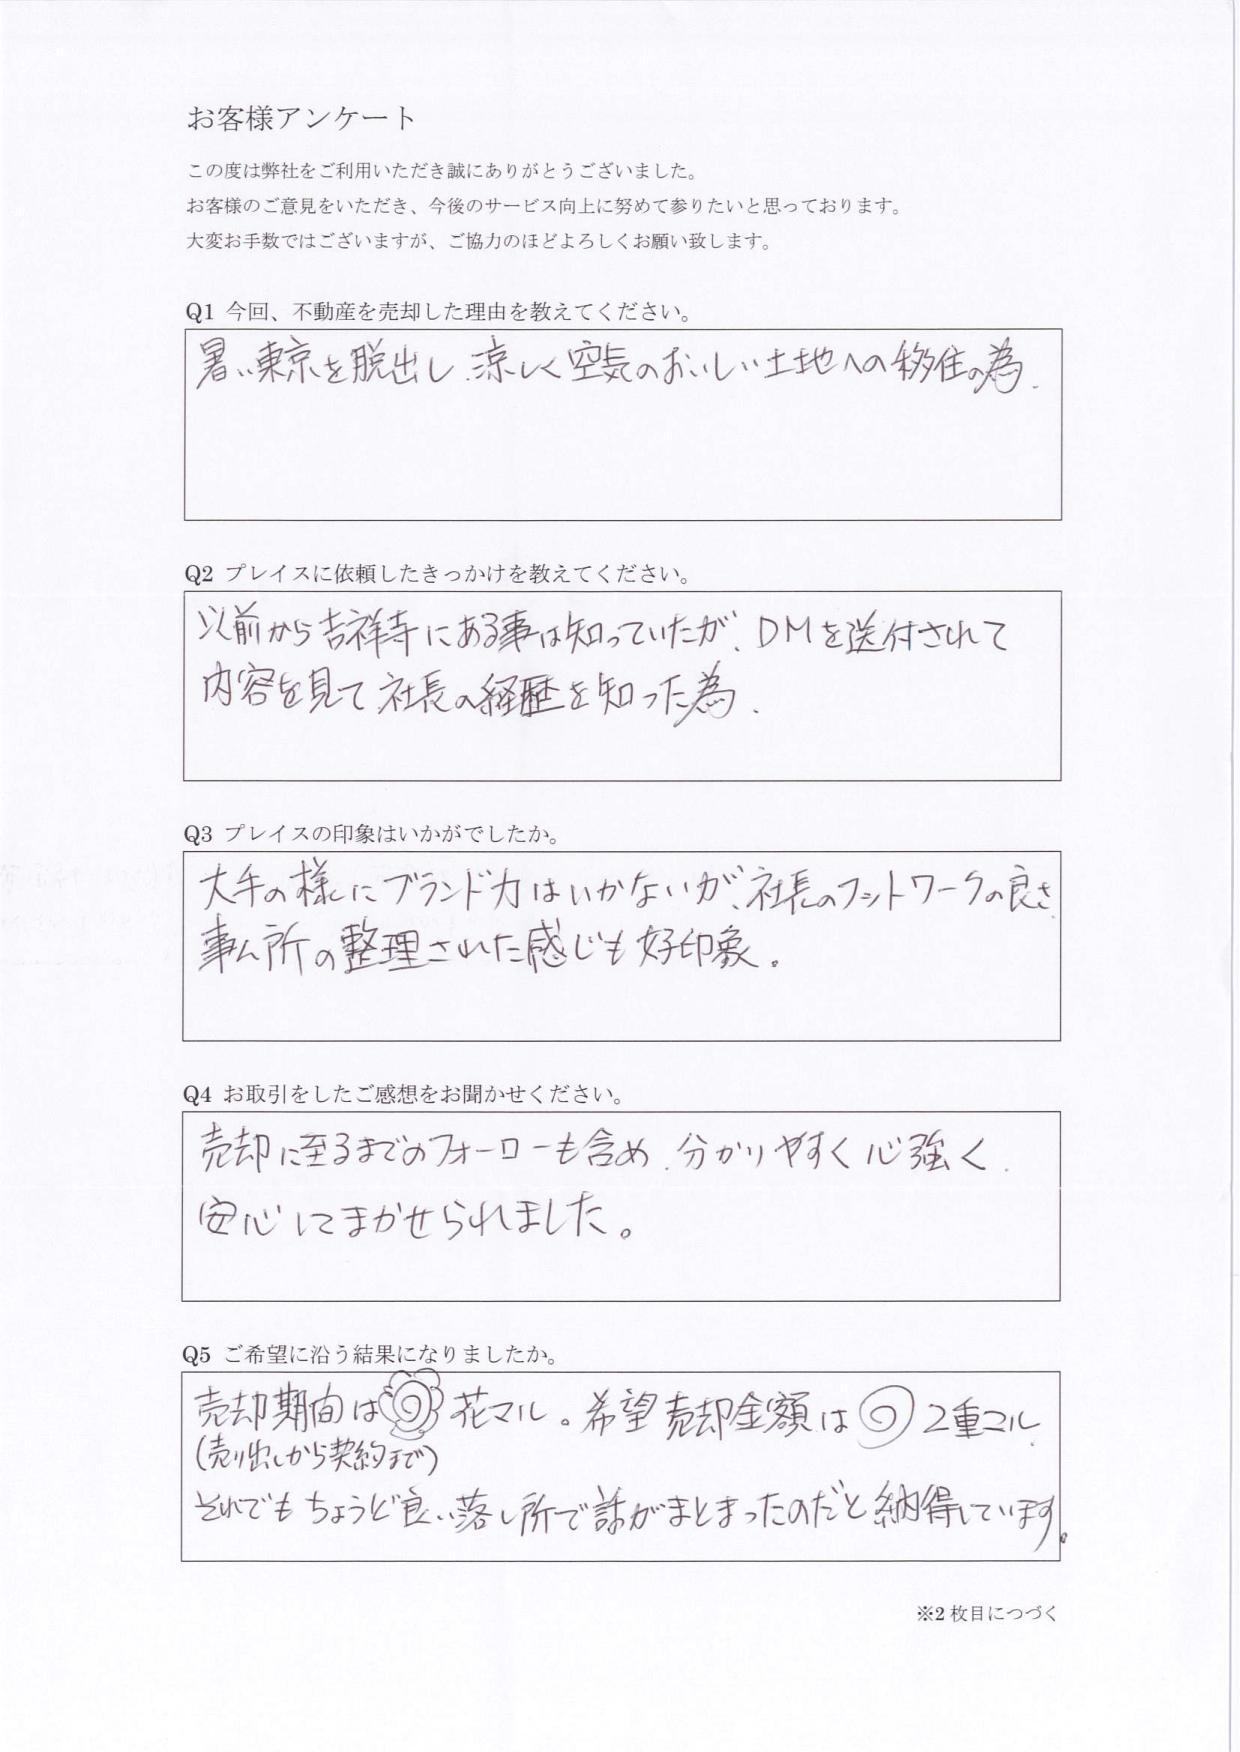 お客様アンケート
この度は弊社をご利用いただき誠にありがとうございました。
お客様のご意見をいただき、今後のサービス向上に努めて参りたいと思っております。
大変お手数ではございますが、ご協力のほどよろしくお願い致します。
Q1 今回、不動産を売却した理由を教えてください。
暑い東京を脱出し、涼しく空気のおいしい土地への移住の為、
Q2 プレイスに依頼したきっかけを教えてください。
以前から吉祥寺にある事は知っていたが、DMを送付されて
内容を見て社長の経歴を知った為、
Q3 プレイスの印象はいかがでしたか。
大手の様にブランド力はいかないが、社長のフットワークの良さ、
事ム所の整理された感じも好印象。
Q4 お取引をしたご感想をお聞かせください。
売却に至るまでのフォーローも含め、分かりやすく心強く、
安心してまかせられました。
Q5 ご希望に沿う結果になりましたか。
売却期間は 花マル。希望売却金額は ◎ 2重マル、
(売り出しから契約まで)
それでもちょうど良い落し所で話がまとまったのだと納得しています。
※2 枚目につづく